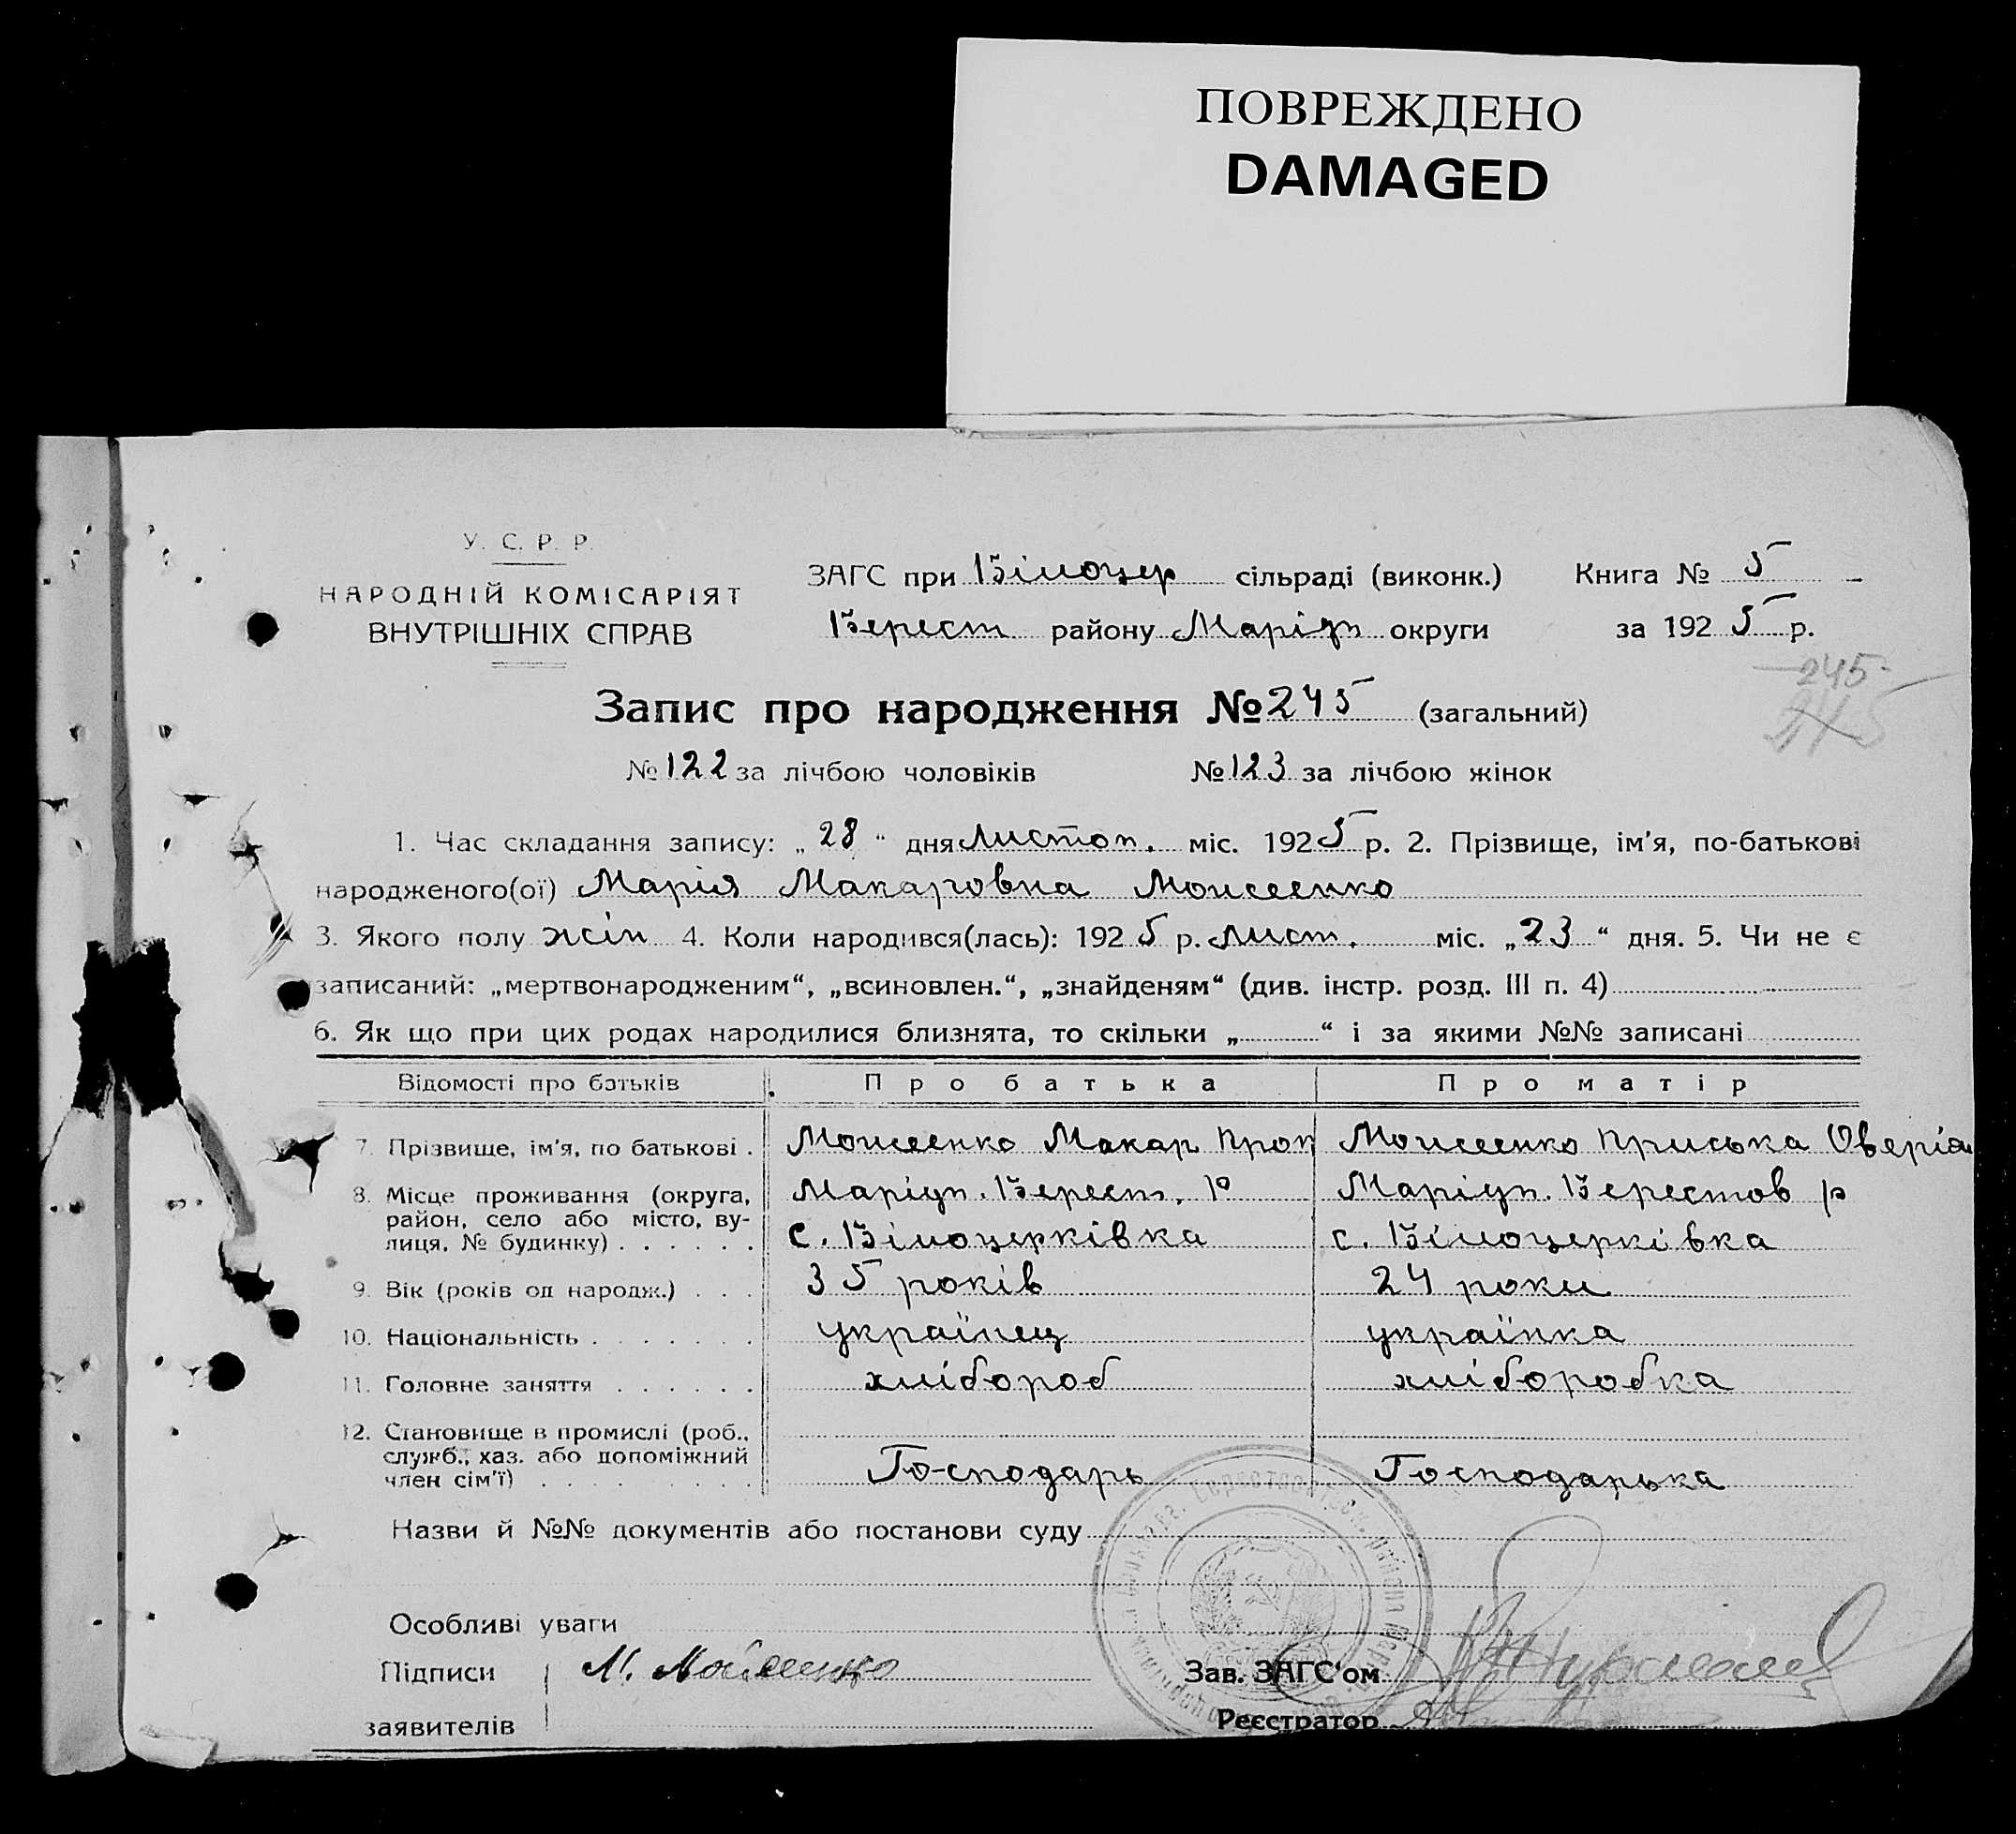 ПОВРЕЖДЕНО
DAMAGED
У. С. Р. Р.
НАРОДНІЙ КОМІСАРІЯТ
ВНУТРІШНІХ СПРАВ
ЗАГС при Білоцер сільраді (виконк.)
Берест району Маріуп округи
Книга № 5
за 1925 р.
245
245
Запис про народження № 245 (загальний)
№ 122 за лічбою чоловіків № 123 за лічбою жінок
1. Час складання запису: „28“ дня Листоп. міс. 1925 р. 2. Прізвище, ім'я, по-батькові
народженого(ої) Марія Макаровна Моисеенко
3. Якого полу жін 4. Коли народився(лась): 1925 р. Лист. міс. „23“ дня. 5. Чи не є
записаний: „мертвонародженим“, „всиновлен.“, „знайденям“ (див. інстр. розд. III п. 4)
6. Як що при цих родах народилися близнята, то скільки „ “ і за якими №№ записані
Відомості про батьків Про батька Про матір
7. Прізвище, ім'я, по батькові . Моисеенко Макар Проп Моисеенко Приська Оверіан
8. Місце проживання (округа, район, село або місто, ву-лиця, № будинку) . . . . . .
Маріуп. Берест. р Маріуп. Берестов р
с. Білоцерківка с. Білоцерківка
9. Вік (років од народж.) . . . 35 років 24 роки
10. Національність . . . . . . . українец українка
11. Головне заняття . . . . . . хлібороб хліборобка
12. Становище в промислі (роб., служб., хаз. або допоміжний член сім'ї) . . . . . . . . .
Господарь Господарька
Назви й №№ документів або постанови суду
Особливі уваги
Підписи заявителів М. Мойсенко
Зав. ЗАГС'ом
Реєстратор